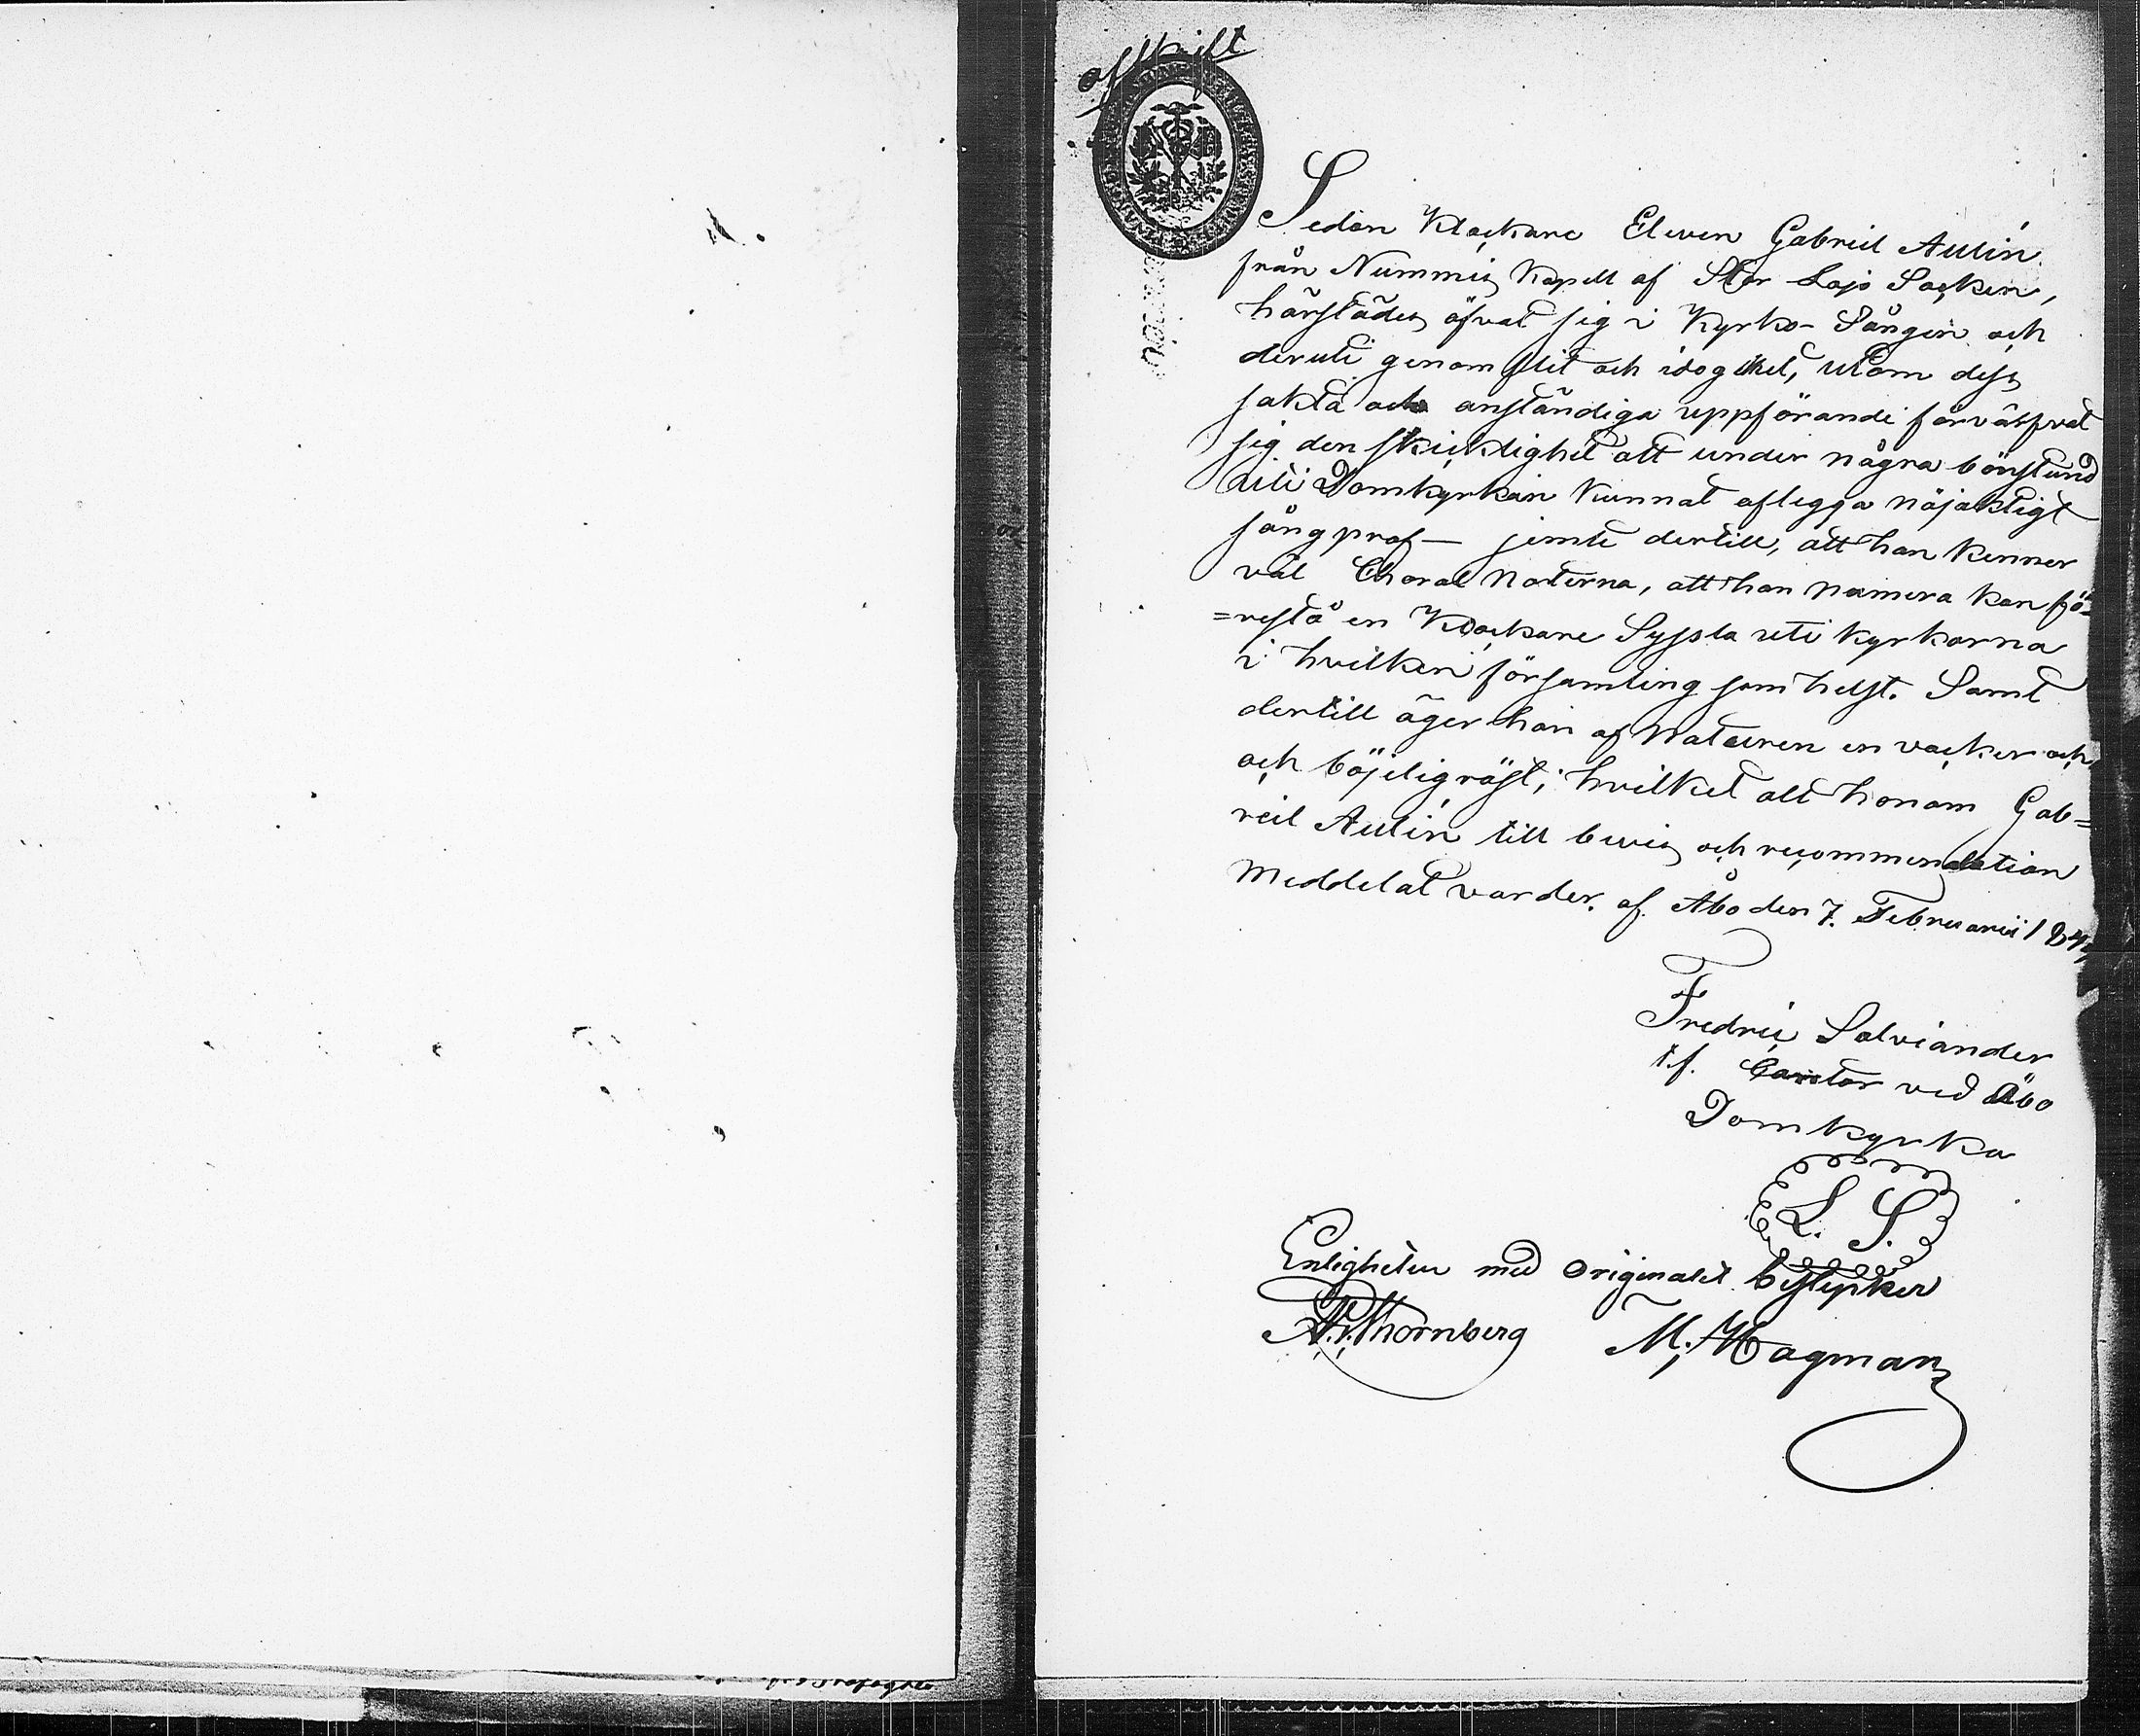 afskrift
Sedan Klockare Eleven Gabriel Aulin
från Nummis Kapell af Stor Lojo Socken,
härstädes öfvat sig i Kyrko-Sången och
deruti genom flit och idoghet, utom dess
sakta och anständiga uppförande förvärfvat
sig den skicklighet att under några bönstund
uti Domkyrkan kunnat aflegga nöjaktigt
sångprof — jemte dertill, att han kenner
väl Choral Noterna, att han numera kan fö=
=restå en Klockare Syssla uti kyrkorna
i hvilken församling som helst. Samt
dertill äger han af Naturen en vacker och
och böjelig röst; hvilket allt honom Gab=
riel Aulin till bevis och recommendation
meddelat varder. af Åbo den 7. Februarii
Fredric Salviander
t.f. Cantor ved Åbo
Domkyrka
L. S.
Enligheten med Originalet bestyrker
Thornberg M. Hagman